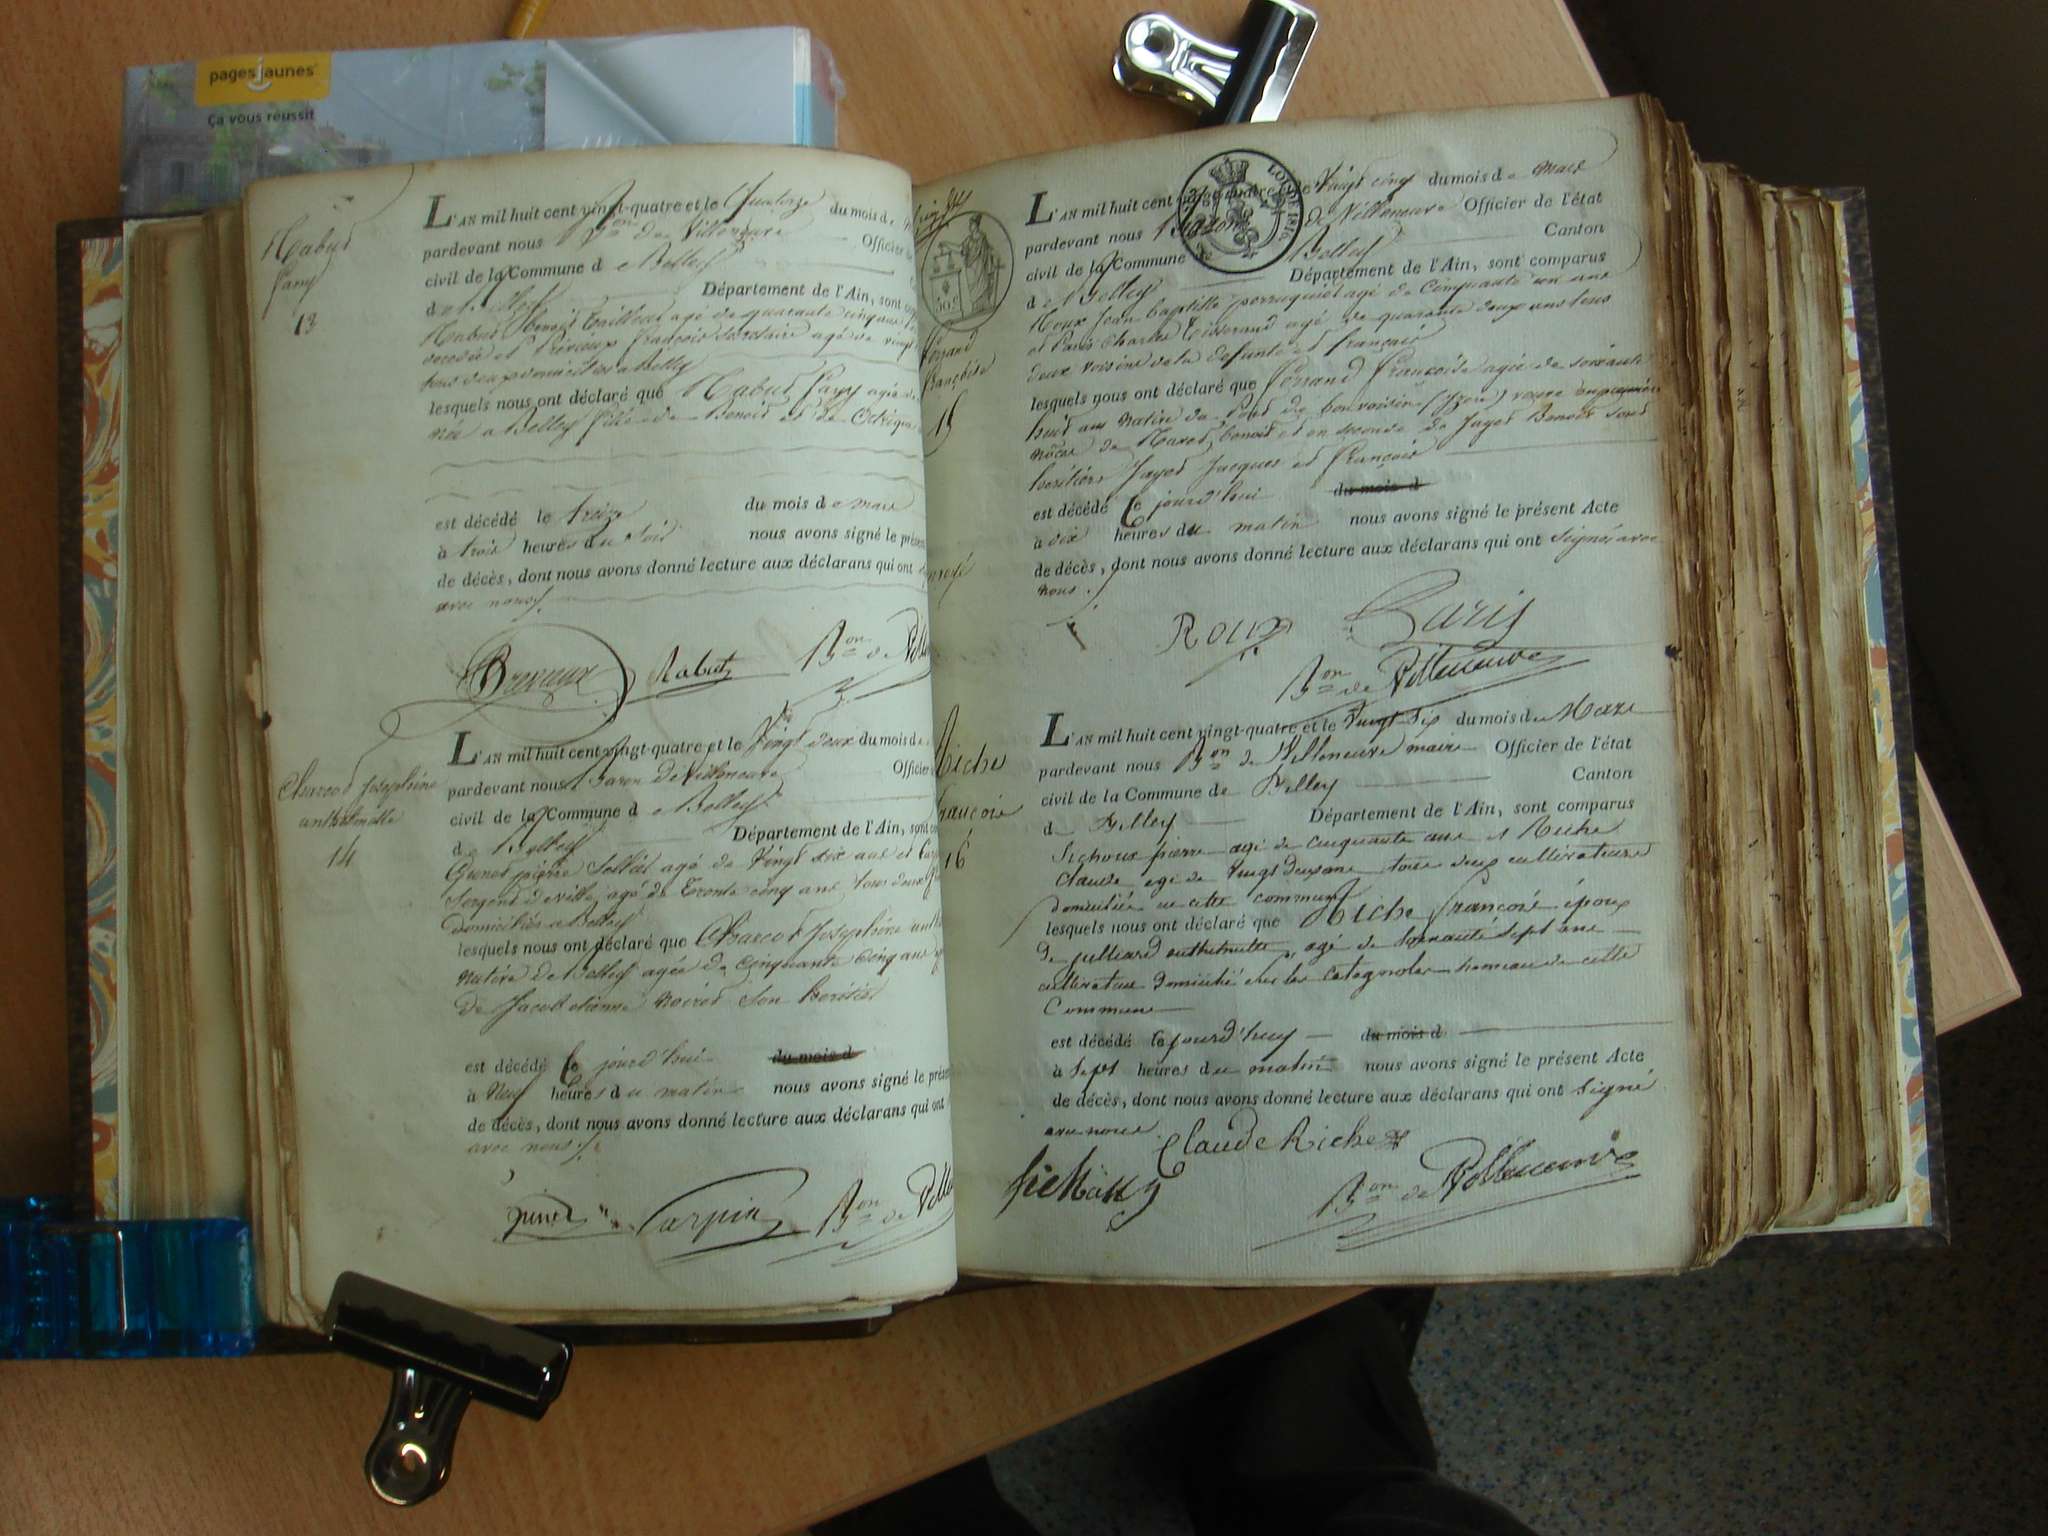 pagesjaunes
Ça vous réussit
Rabut
fany
13
L'AN mil huit cent vingt-quatre et le Quatorze du mois de
pardevant nous Bon de Villeneuve Officier
civil de la Commune de Belley
de Belley Département de l'Ain, sont
Rabut Benoit Tailleur agé de quarante cinq ans
et Prévieux François Secrétaire agé de vingt
tous deux domiciliés a Belley
lesquels nous ont déclaré que Rabut fany agée de
née a Belley fille de Benoit et de
est décédé le treize du mois de mars
à trois heures du soir nous avons signé le présent
de décès, dont nous avons donné lecture aux déclarans qui ont signé
avec nous
Rabut Bon de Ville
Charcot Josephine
anthelmette
14
L'AN mil huit cent vingt-quatre et le Vingt deux du mois de
pardevant nous Baron de Villeneuve Officier
civil de la Commune de Belley
de Belley Département de l'Ain, sont
Gunet pierre Sellier agé de Vingt six ans et Carpin
Sergent de ville, agé de Trente cinq ans tous deux
domiciliés a Belley
lesquels nous ont déclaré que Charcot Josephine
native de Belley agée de cinquante cinq ans
de Jacob etienne Noiret son heritier
est décédé le jourd'hui du mois d
à Neuf heures du matin nous avons signé le présent
de décès, dont nous avons donné lecture aux déclarans qui ont
avec nous
Carpin Bon de Ville
LOI DE 1816
Ferrand
françoise
15
L'AN mil huit cent vingt-quatre et le Vingt cinq du mois de Mars
pardevant nous Baron de Villeneuve Officier de l'état
civil de la Commune de Belley Canton
de Belley Département de l'Ain, sont comparus
Roux Jean baptiste perruquier agé de Cinquante un ans
et Paris Charles Tisserand agé de quarante deux ans tous
deux voisins de la defunte et français
lesquels nous ont déclaré que Ferrand Françoise agée de soixante
huit ans native de Pont de bonvoisin (Izere) veuve en premiere
nôces de benoit et en seconde de Jayet Benoit sont
heritiers Jayet Jacques et François
est décédé le jourd'hui du mois d
à dix heures du matin nous avons signé le présent Acte
de décès, dont nous avons donné lecture aux déclarans qui ont signés avec
nous.
Roux Paris
Bon de Villeneuve
Riche
francois
16
L'AN mil huit cent vingt-quatre et le Vingt Six du mois de Mars
pardevant nous Bon de Villeneuve maire Officier de l'état
civil de la Commune de Belley Canton
de Belley Département de l'Ain, sont comparus
Sichoux pierre agé de cinquante ans et Riche
Claude agé de vingt deux ans tous deux cultivateurs
domiciliés en cette commune
lesquels nous ont déclaré que Riche francois époux
de julliard anthelmette, agé de soixante sept ans
cultivateur domicilié hameau de cette
Commune
est décédé le jourd'huy du mois d
à sept heures du matin nous avons signé le présent Acte
de décès, dont nous avons donné lecture aux déclarans qui ont signé
avec nous
Claude Riche
Bon de Villeneuve